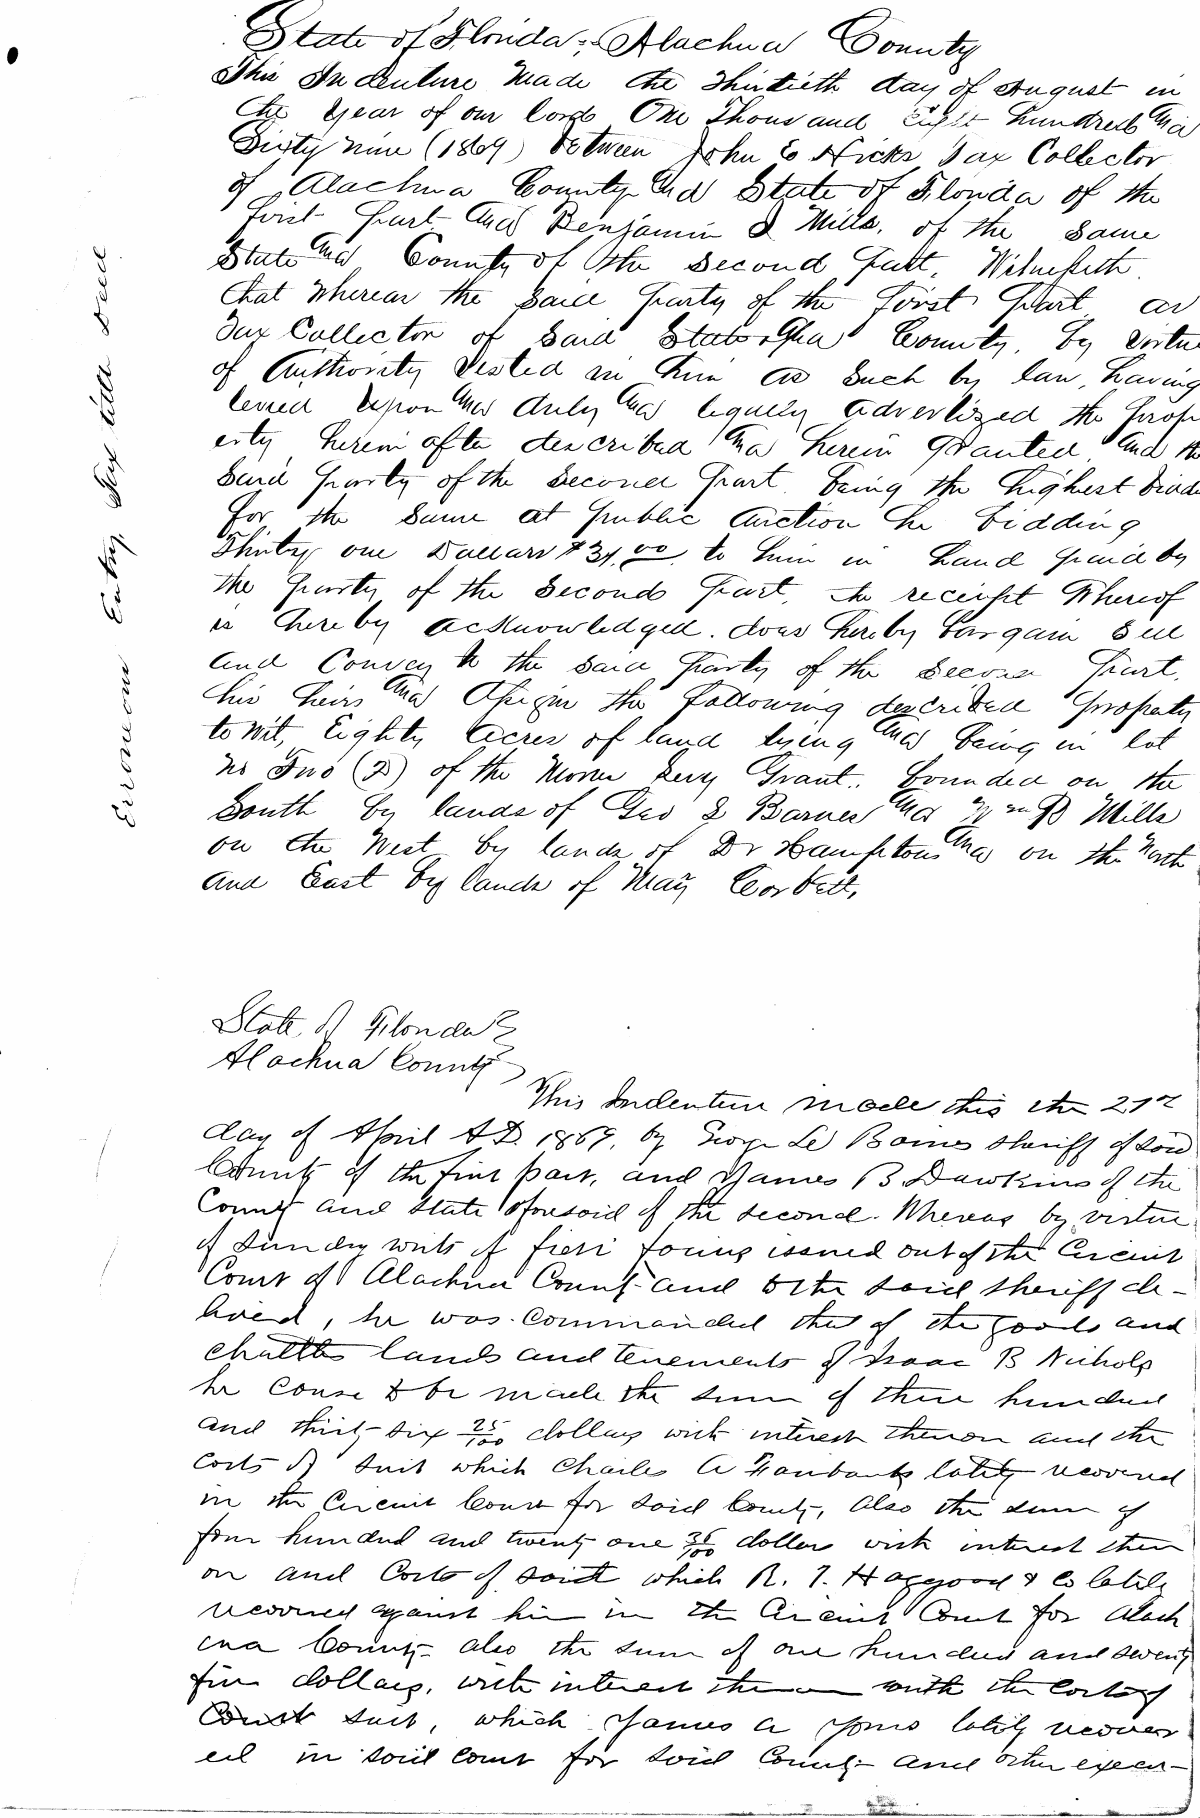 State of Florida; Alachua County
This Indenture Made the Thirtieth day of August in
the Year of our lord One Thousand Eight hundred And
Sixty nine (1869) between John E Hicks Tax Collector
of Alachua County And State of Florida of the
first part And Benjamin I Mills, of the same
State And County of the second part, Witnesseth.
that whereas the said party of the first part as
Tax Collector of Said State And County, by virtue
of Authority Vested in him as Such by law, having
levied Upon And duly And legally advertized the prop
erty herein after described And herein granted, And the
said party of the second part being the highest bidde
for the same at public auction he bidding
Thirty one Dollars $31.00 to him in hand paid by
the party of the second part, the receipt Whereof
is hereby acknowledged. does hereby bargain sell
and Convey to the said party of the second part,
his heirs And Assigns the following described property
to wit, Eighty Acres of land lying And being in lot
no Two (2) of the Moses Levy Grant., bounded on the
South by lands of Geo L Barnes And Wm B Mills
on the West by lands of Dr Hamptons And on the North
and East by lands of May Corbett,
Erroneous Entry Tax title Deed
State of Florida
Alachua County
This Indenture made this the 21st
day of April A.D. 1869, by George Le Barnes sheriff of said
County of the first part, and James B Dawkins of the
County and State aforesaid of the second. Whereas by virtue
of sundry writs of fieri facias issued out of the Circuit
Court of Alachua County and to the said Sheriff de-
livered, he was commanded that of the goods and
chattles lands and tenements of Isaac B Nichols
he cause to be made the sum of three hundred
and thirty six 25/100 dollars with interest thereon and the
costs of suit which Charles A Fairbanks lately recovered
in the Circuit Court for said County, also the sum of
four hundred and twenty one 36/100 dollars with interest there
on and Costs of suit which R. T. Hapgood & Co lately
recovered against him in the Circuit Court for Alach
ua County also the sum of one hundred and seventy
five dollars, with interest thereon with the Costs of
Court suit, which James A lately recover
ed in said court for said County and other execu-